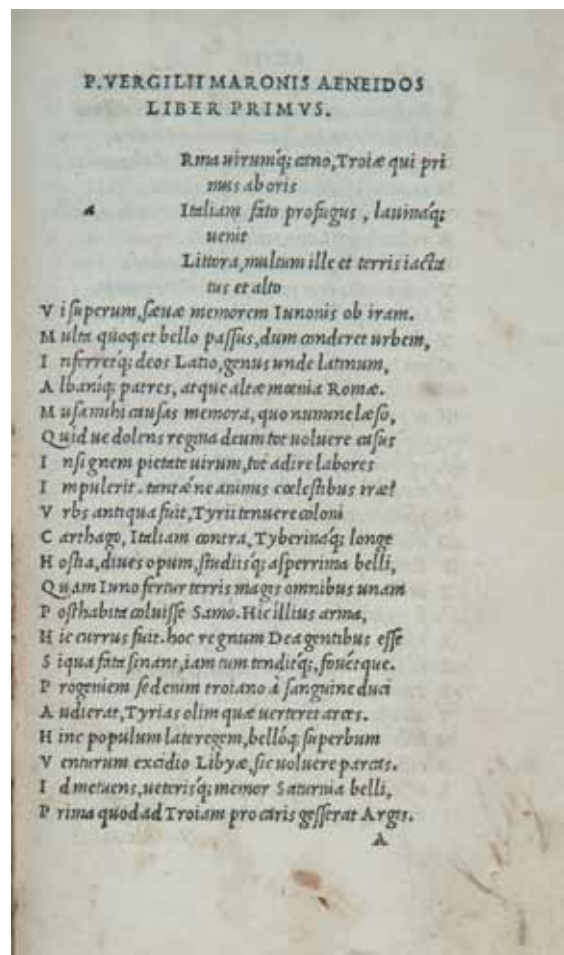 P. VERGILII MARONIS AENEIDOS
LIBER PRIMVS.
Rma uirumq́; cano, Troiæ qui pri
mus ab oris
a Italiam fato profugus, lauinaq́;
uenit
Littora, multum ille et terris iacta
tus et alto
V i superum, sæuæ memorem Iunonis ob iram.
M ulta quoq; et bello passus, dum conderet urbem,
I nferretq́; deos Latio, genus unde latinum,
A lbaniq́; patres, atque altæ mœnia Romæ.
M usa mihi causas memora, quo numine læso,
Q uid ue dolens regina deum tot uoluere casus
I nsignem pietate uirum, tot adire labores
I mpulerit. tantæ ne animus cœlestibus iræ?
V rbs antiqua fuit, Tyrii tenuere coloni
C arthago, Italiam contra, Tyberinaq́; longe
H ostia, diues opum, studiisq́; asperrima belli,
Q uam Iuno fertur terris magis omnibus unam
P osthabita coluisse Samo. Hic illius arma,
H ic currus fuit. hoc regnum Dea gentibus esse
S i qua fata sinant, iam tum tenditq́;, fouétque.
P rogeniem sed enim troiano à sanguine duci
A udierat, Tyrias olim quæ uerteret arces.
H inc populum late regem, bellóq; superbum
V enturum excidio Libyæ, sic uoluere parcas.
I d metuens, ueterisq́; memor Saturnia belli,
P rima quod ad Troiam pro caris gesserat Argis.
A